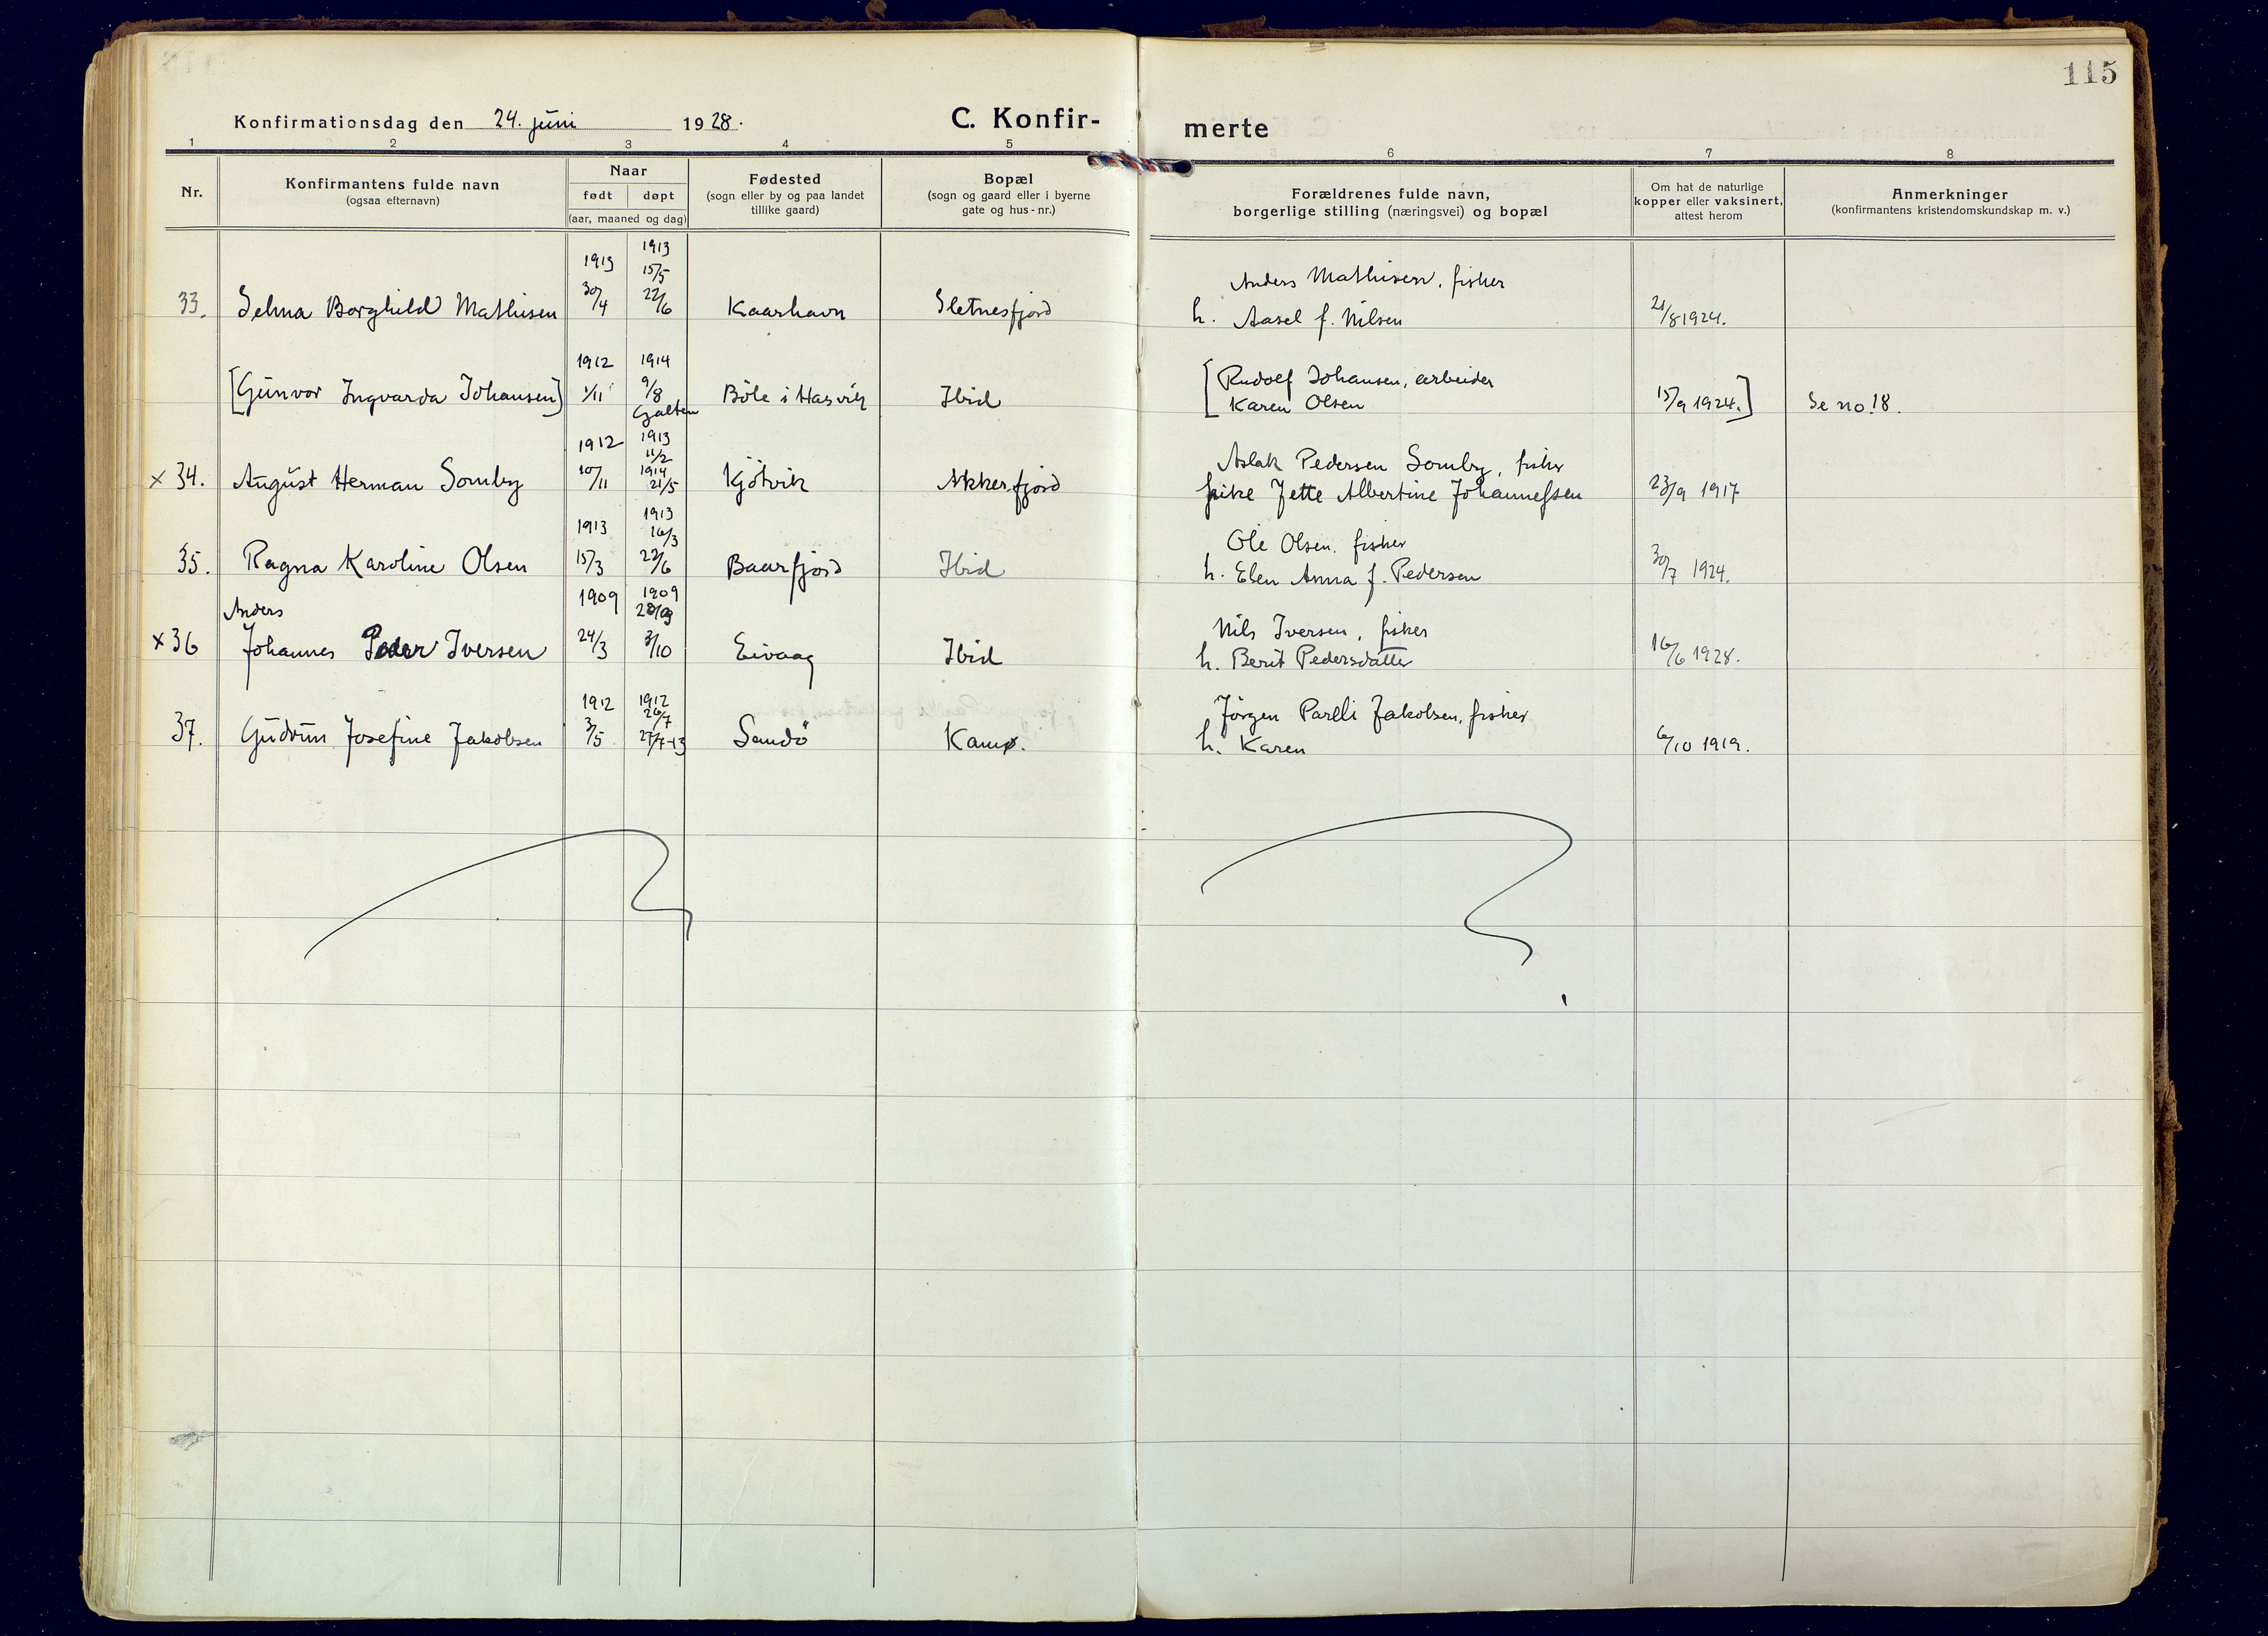 115
Konfirmationsdag den 24. juni 1928. C. Konfir-
merte
1 2 3 4 5
6 7 8
Nr. Konfirmantens fulde navn (ogsaa efternavn)
Naar
født døpt
(aar, maaned og dag)
Fødested (sogn eller by og paa landet tillike gaard)
Bopæl (sogn og gaard eller i byerne gate og hus-nr.)
Forældrenes fulde navn, borgerlige stilling (næringsvei) og bopæl
Om hat de naturlige kopper eller vaksinert, attest herom
Anmerkninger (konfirmantens kristendomskundskap m. v.)
1913 1913
15/5
33. Selma Borghild Mathisen 30/4 22/6 Kaarhavn Sletnesfjord
Anders Mathisen, fisker
h. Aasel f. Nilsen 21/8 1924.
1912 1914
[Gunvor Ingvarda Johansen] 1/11 9/8 Böle i Hasvik Ibid
Galten
[Rudolf Johansen, arbeider
Karen Olsen 15/9 1924.] Se no. 18.
1912 1913
11/2
1914
x 34. August Herman Somby 10/11 21/5 Kjötvik Akkerfjord
Aslak Pedersen Somby, fisker
pike Jette Albertine Johannessen 23/9 1917
1913 1913
16/3
35. Ragna Karoline Olsen 15/3 22/6 Baarfjord Ibid
Ole Olsen. fisker
h. Elen Anna f. Pedersen 30/7 1924.
Anders 1909 1909
x 36 Johannes Peder Iversen 24/3 3/10 Eivaag Ibid
Nils Iversen, fisker
h. Berit Pedersdatter 16/6 1928.
1912 1912
26/7
37. Gudrun Josefine Jakobsen 3/5 27/7-13 Sandö Kamø.
Jörgen Parelli Jakobsen, fisker
h. Karen 6/10 1919.